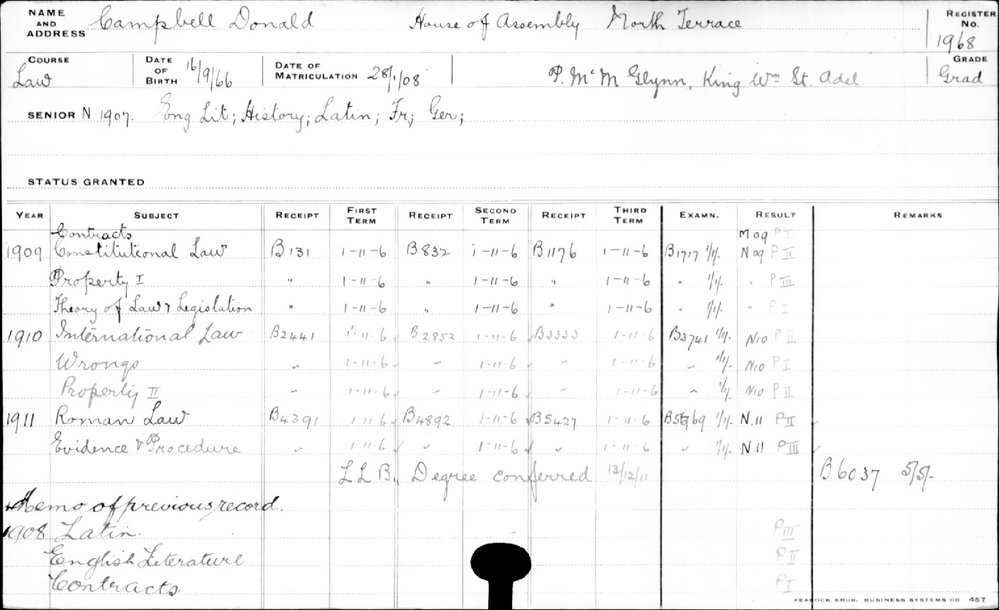 NAME AND ADDRESS Campbell Donald House of Assembly North Terrace REGISTER No. 1968
COURSE Law DATE OF BIRTH 16/9/66 DATE OF MATRICULATION 28/1/08 P. McM Glynn, King Wm St. Adel GRADE Grad
SENIOR N 1907. Eng Lit; History; Latin; Fr; Ger;
STATUS GRANTED
YEAR SUBJECT RECEIPT FIRST TERM RECEIPT SECOND TERM RECEIPT THIRD TERM EXAMN. RESULT REMARKS
Contracts M 09 P I
1909 Constitutional Law B131 1-11-6 B832 1-11-6 B1176 1-11-6 B1717 1/1/- N 09 P II
Property I " 1-11-6 " 1-11-6 " 1-11-6 " 1/1/- " P III
Theory of Law & Legislation " 1-11-6 " 1-11-6 " 1-11-6 " 1/1/- " P I
1910 International Law B2441 1-11-6 B2852 1-11-6 B3333 1-11-6 B3741 1/1/- N10 P II
Wrongs " 1-11-6 " 1-11-6 " 1-11-6 " 1/1/- N10 P I
Property II " 1-11-6 " 1-11-6 " 1-11-6 " 1/1/- N10 P II
1911 Roman Law B4391 1-11-6 B4892 1-11-6 B5427 1-11-6 1/1/- N.11 P II
Evidence & Procedure " 1-11-6 " 1-11-6 " 1-11-6 " 1/1/- N.11 P III
L L B. Degree conferred 13/12/11 B6037 5/5/-
Memo of previous record.
1908 Latin P III
English Literature P II
Contracts P I
PEACOCK BROS. BUSINESS SYSTEMS CO 457